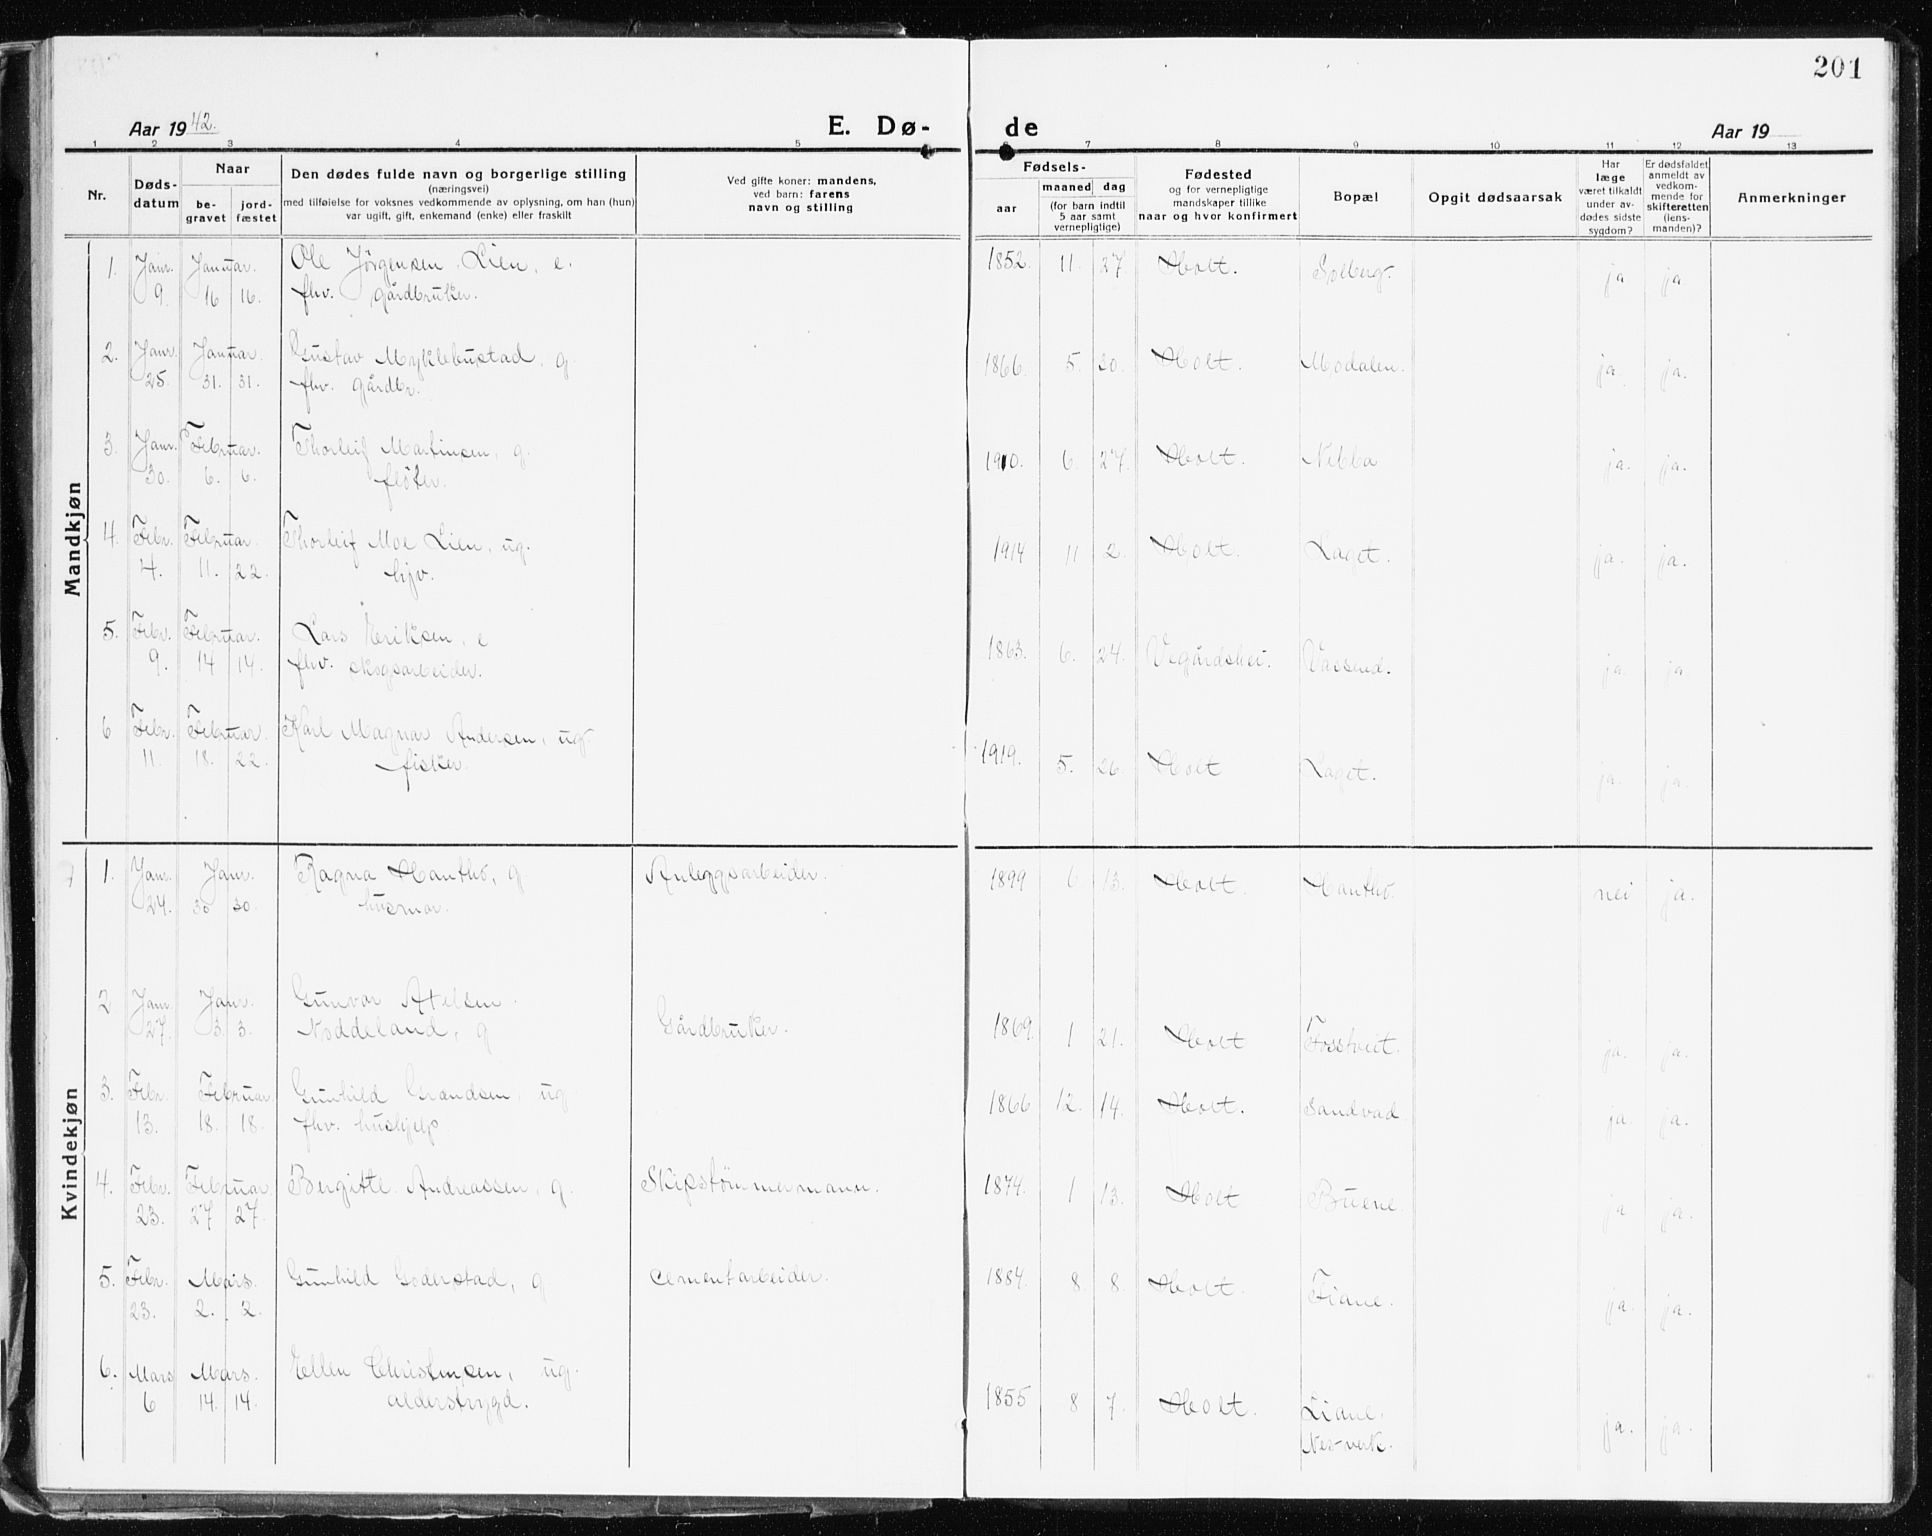 201
Aar 1942.
E. Dø-
de
Aar 19
1 2 3 4 5 6 7 8 9 10 11 12 13
Nr.
Døds-
datum
Naar
be-
gravet
jord-
fæstet
Den dødes fulde navn og borgerlige stilling
(næringsvei)
med tilføielse for voksnes vedkommende av oplysning, om han (hun)
var ugift, gift, enkemand (enke) eller fraskilt
Ved gifte koner: mandens,
ved barn: farens
navn og stilling
Fødsels-
aar
maaned
dag
(for barn indtil
5 aar samt
vernepligtige)
Fødested
og for vernepligtige
mandskaper tillike
naar og hvor konfirmert
Bopæl
Opgit dødsaarsak
Har
læge
været tilkaldt
under av-
dødes sidste
sygdom?
Er dødsfaldet
anmeldt av
vedkom-
mende for
skifteretten
(lens-
manden)?
Anmerkninger
Mandkjøn
1. Janr. Januar. Ole Jörgensen Lien, e. 1852. 11. 27. Holt. Solberg. ja ja
9. 16 16. fhv. gårdbruker.
2. Janr. Januar. Gustav Myklebustad, g. 1866. 5. 20. Holt. Modalen. ja. ja.
25. 31. 31. fhv. gårdbr.
3. Janr. Februar. Thorleif Martinsen, g. 1910. 6. 27. Holt. Nebba ja. ja.
30. 6. 6. fløter.
4. Febr. Februar. Thorleif Moe Lien, ug. 1914 11 2. Holt. Laget. ja. ja.
4. 11. 22.
5. Febr. Februar. Lars Eriksen, e 1863. 6. 24. Vegårdshei. Vassend. ja. ja
9. 14 14. fhv. skogsarbeider.
6 Febr. Februar. Karl Magnar Andersen, ug. 1919. 5. 26. Holt Laget. ja. ja.
11. 18. 22. fisker.
Kvindekjøn
1. Janr. Janr. Ragna Hanthó, g Anleggsarbeider. 1899 6 13. Holt. Hanthó. nei ja.
24. 30 30. husmor.
2 Janr. Janr. Gunvor Axelsen Gårdbruker. 1869. 1 21. Holt Fosstveit. ja. ja.
27. 3. 3. Noddeland, g
3. Febr. Februar. Gunhild Grandsen, ug. 1866 12. 14. Holt. Sandvad ja ja.
13. 18. 18. fhv. hushjelp
4. Febr. Februar Bergitte Andreassen, g. Skipstømmermann. 1874. 1 13. Holt Buene. ja ja.
23. 27 27.
5. Febr. Mars. Gunhild Goderstad, g cementarbeider. 1884. 8. 8. Holt. Fiane. ja. ja.
23. 2. 2.
6. Mars Mars. Ellen Christensen, ug. 1855 8 7. Holt. Liane. ja. ja.
6 14. 14. alderstrygd. Nes-verk.